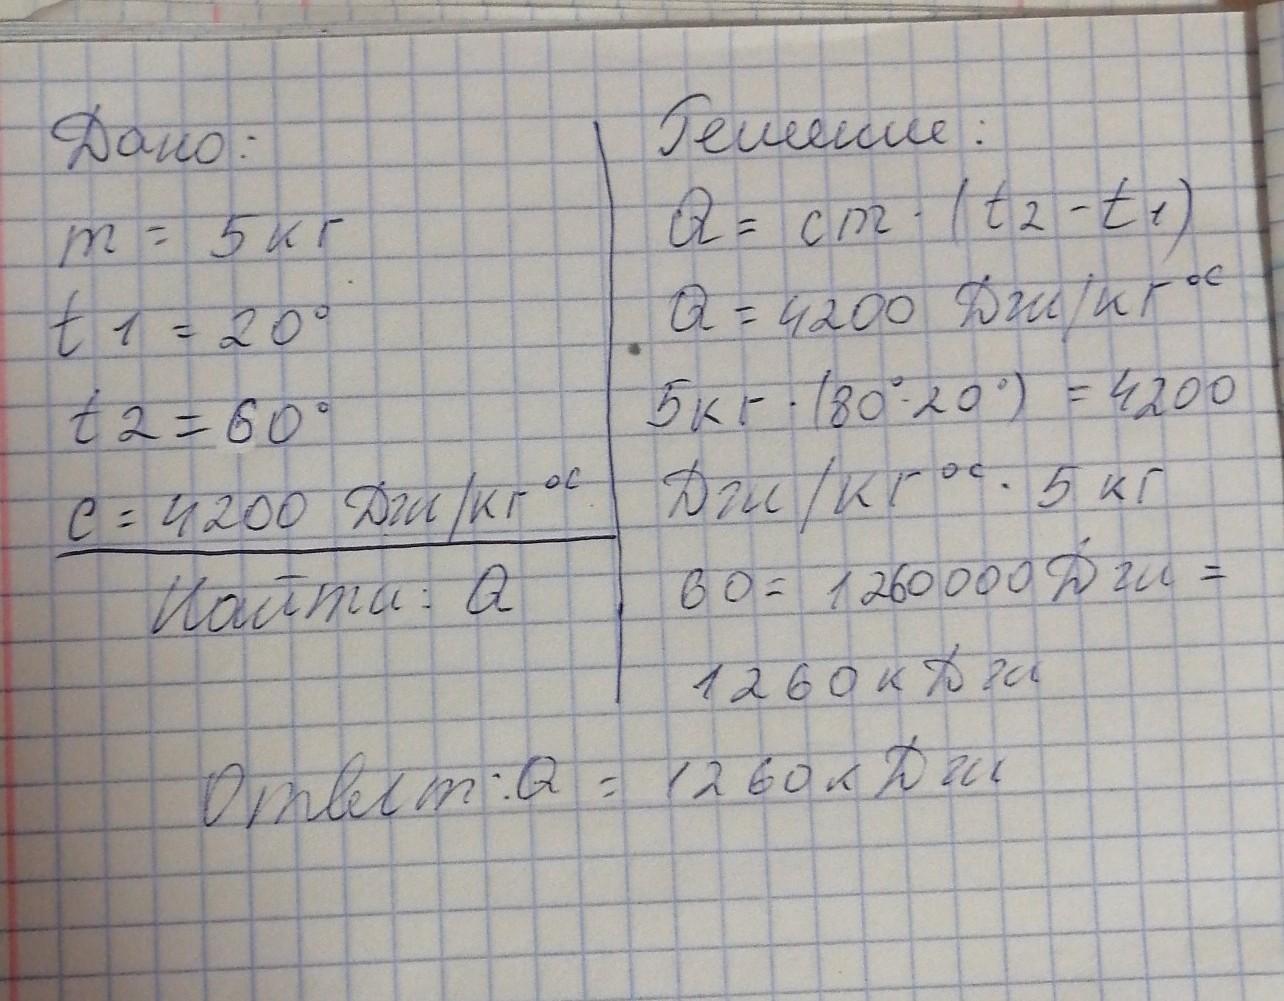 Дано:
m = 5 кг
t1 = 20°
t2 = 60°
c = 4200 Дж/кг °с
Найти: Q
Решение:
Q = cm · (t2 - t1)
Q = 4200 Дж/кг °с
5 кг · (80° - 20°) = 4200
Дж/кг °с · 5 кг
60 = 1260000 Дж =
1260 кДж
Ответ: Q = 1260 кДж